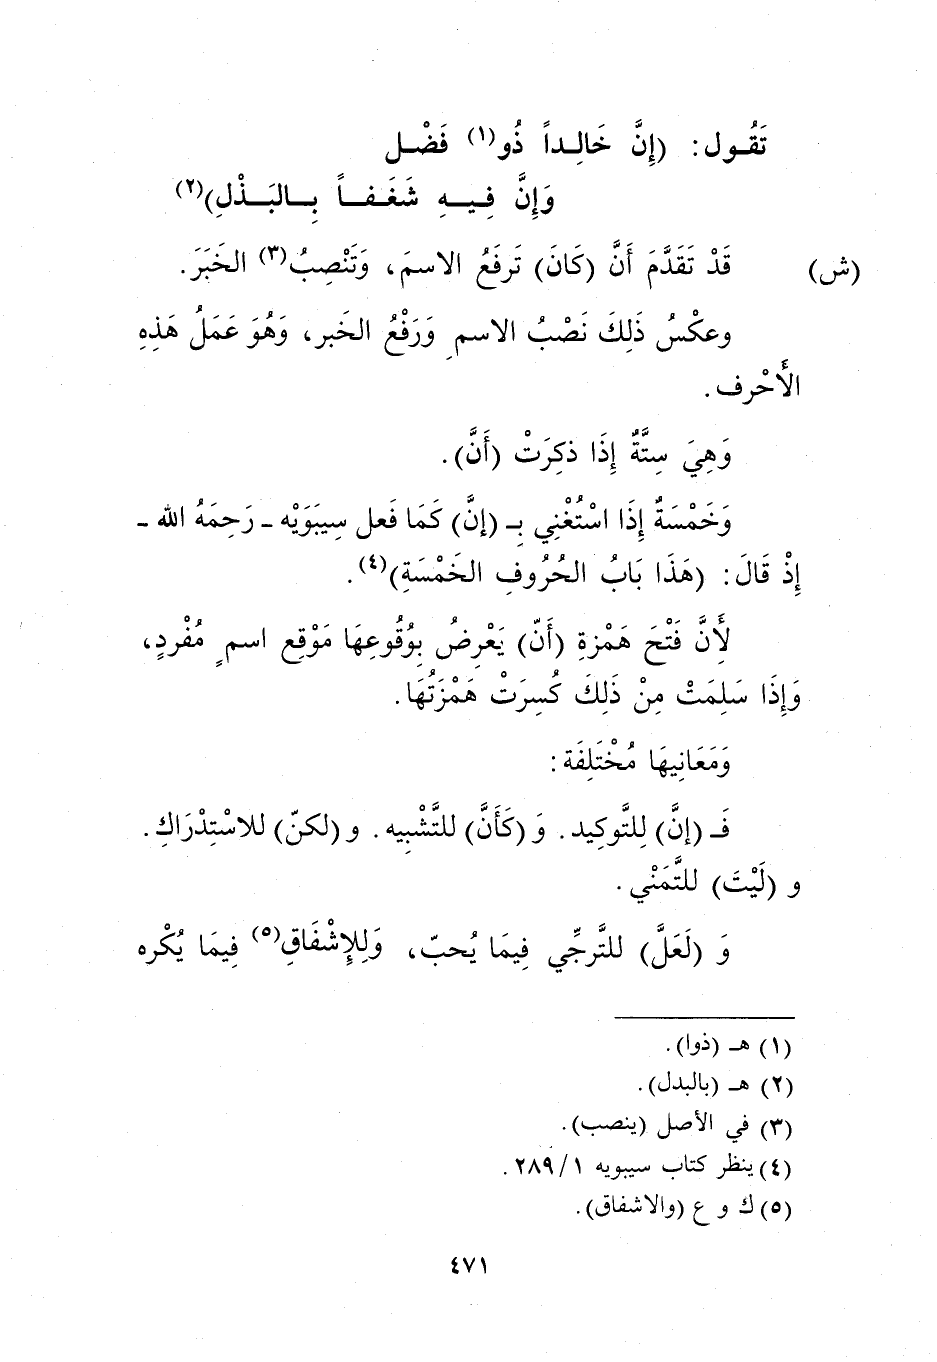 تَقُـول: (إِنَّ خَالِـداً ذُو(١) فَضْـل
وَإِنَّ فِـيـهِ شَغَـفـاً بِـالبَـذْلِ)(٢)
(ش) قَدْ تَقَدَّمَ أَنَّ (كَانَ) تَرفَعُ الاسمَ، وَتَنْصِبُ(٣) الخَبَرَ.
وعكْسُ ذَلِكَ نَصْبُ الاسمِ وَرَفْعُ الخَبر، وَهُوَ عَمَلُ هَذِهِ
الأَحْرف.
وَهِيَ سِتَّةٌ إِذَا ذكِرَتْ (أَنَّ).
وَخَمْسَةٌ إِذَا اسْتُغْنِي بِـ (إنَّ) كَمَا فَعل سِيبَوَيْه ـ رَحِمَهُ الله ـ
إِذْ قَالَ: (هَذَا بَابُ الحُرُوفِ الخَمْسَةِ)(٤).
لِأَنَّ فَتْحَ هَمْزةِ (أَنّ) يَعْرِضُ بِوُقُوعِهَا مَوْقِع اسمٍ مُفْردٍ،
وَإِذَا سَلِمَتْ مِنْ ذَلِكَ كُسِرَتْ هَمْزَتُهَا.
وَمَعَانِيهَا مُخْتَلِفَة:
فَـ (إنَّ) لِلتَّوكِيد. وَ (كَأَنَّ) للتَّشْبِيه. و (لكنّ) للاسْتِدْرَاكِ.
و (لَيْتَ) للتَّمَنْي.
وَ (لَعَلَّ) للتَّرجِّي فِيمَا يُحبّ، وَلِلإِشْفَاقِ(٥) فِيمَا يُكْره
(١) هـ (ذوا).
(٢) هـ (بالبدل).
(٣) في الأصل (ينصب).
(٤) ينظر كتاب سيبويه ١/ ٢٨٩.
(٥) ك و ع (والاشفاق).
٤٧١